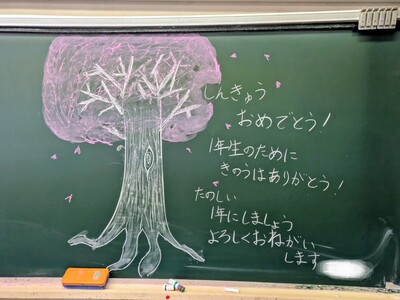 しんきゅう
おめでとう!
1年生のために
きのうはありがとう!
たのしい
1年にしましょう
よろしくおねがい
します